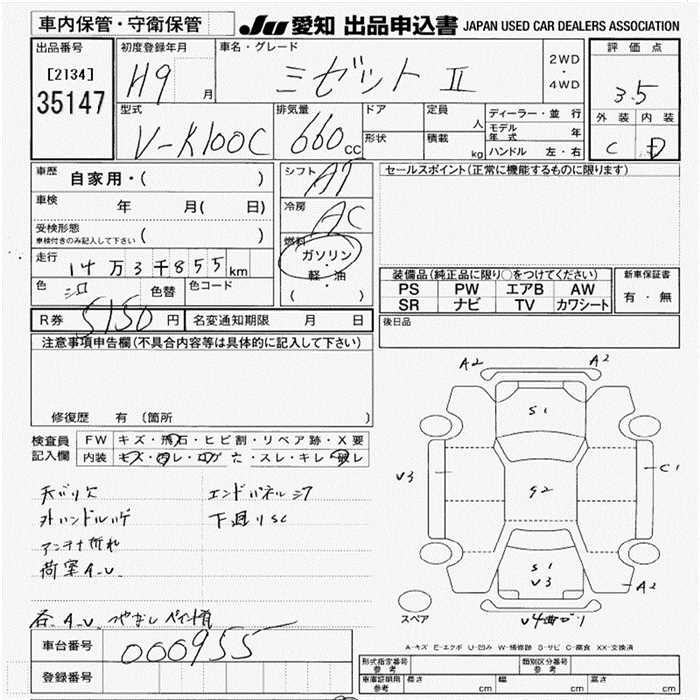 車内保管・守衛保管
JU 愛知 出品申込書 JAPAN USED CAR DEALERS ASSOCIATION
出品番号
[2134]
35147
初度登録年月
H9 月
車名・グレード
ミゼット II
2WD
・
4WD
評価点
3.5
外装 内装
C D
型式
V-K100C
排気量
660 CC
ドア
形状
定員 人
積載 kg
ディーラー・並行
モデル年式 年
ハンドル 左・右
車歴 自家用・( )
車検 年 月( 日)
受検形態
車検付きのみ記入して下さい ( )
走行 14万3千855km
色 シロ 色替 色コード
シフト A7
冷房 AC
燃料 ガソリン
・
軽・油
( )
R券 5150 円 名変通知期限 月 日
セールスポイント(正常に機能するものに限ります)
装備品(純正品に限り○をつけてください)
PS PW エアB AW
SR ナビ TV カワシート
新車保証書
有・無
後日品
注意事項申告欄(不具合内容等は具体的に記入して下さい)
修復歴 有 (箇所 )
検査員記入欄
FW キズ・飛石・ヒビ割・リペア跡・X要
内装 キズ・汚レ・コゲ穴・スレ・キレ・破レ
天バリ欠 エンドパネルシワ
外ハンドルハゲ 下廻りSC
アンテナ折れ
荷室A.U
各A.U
車台番号 000955
登録番号
A2 A2
S1
V3
C1
S1
V3
A2
スペア
A-キズ E-エクボ U-凹み W-補修跡 S-サビ C-腐食 XX-交換済
形式指定番号
参考
類別区分番号
参考
車庫証明用
参考
長さ cm 幅 cm 高さ cm